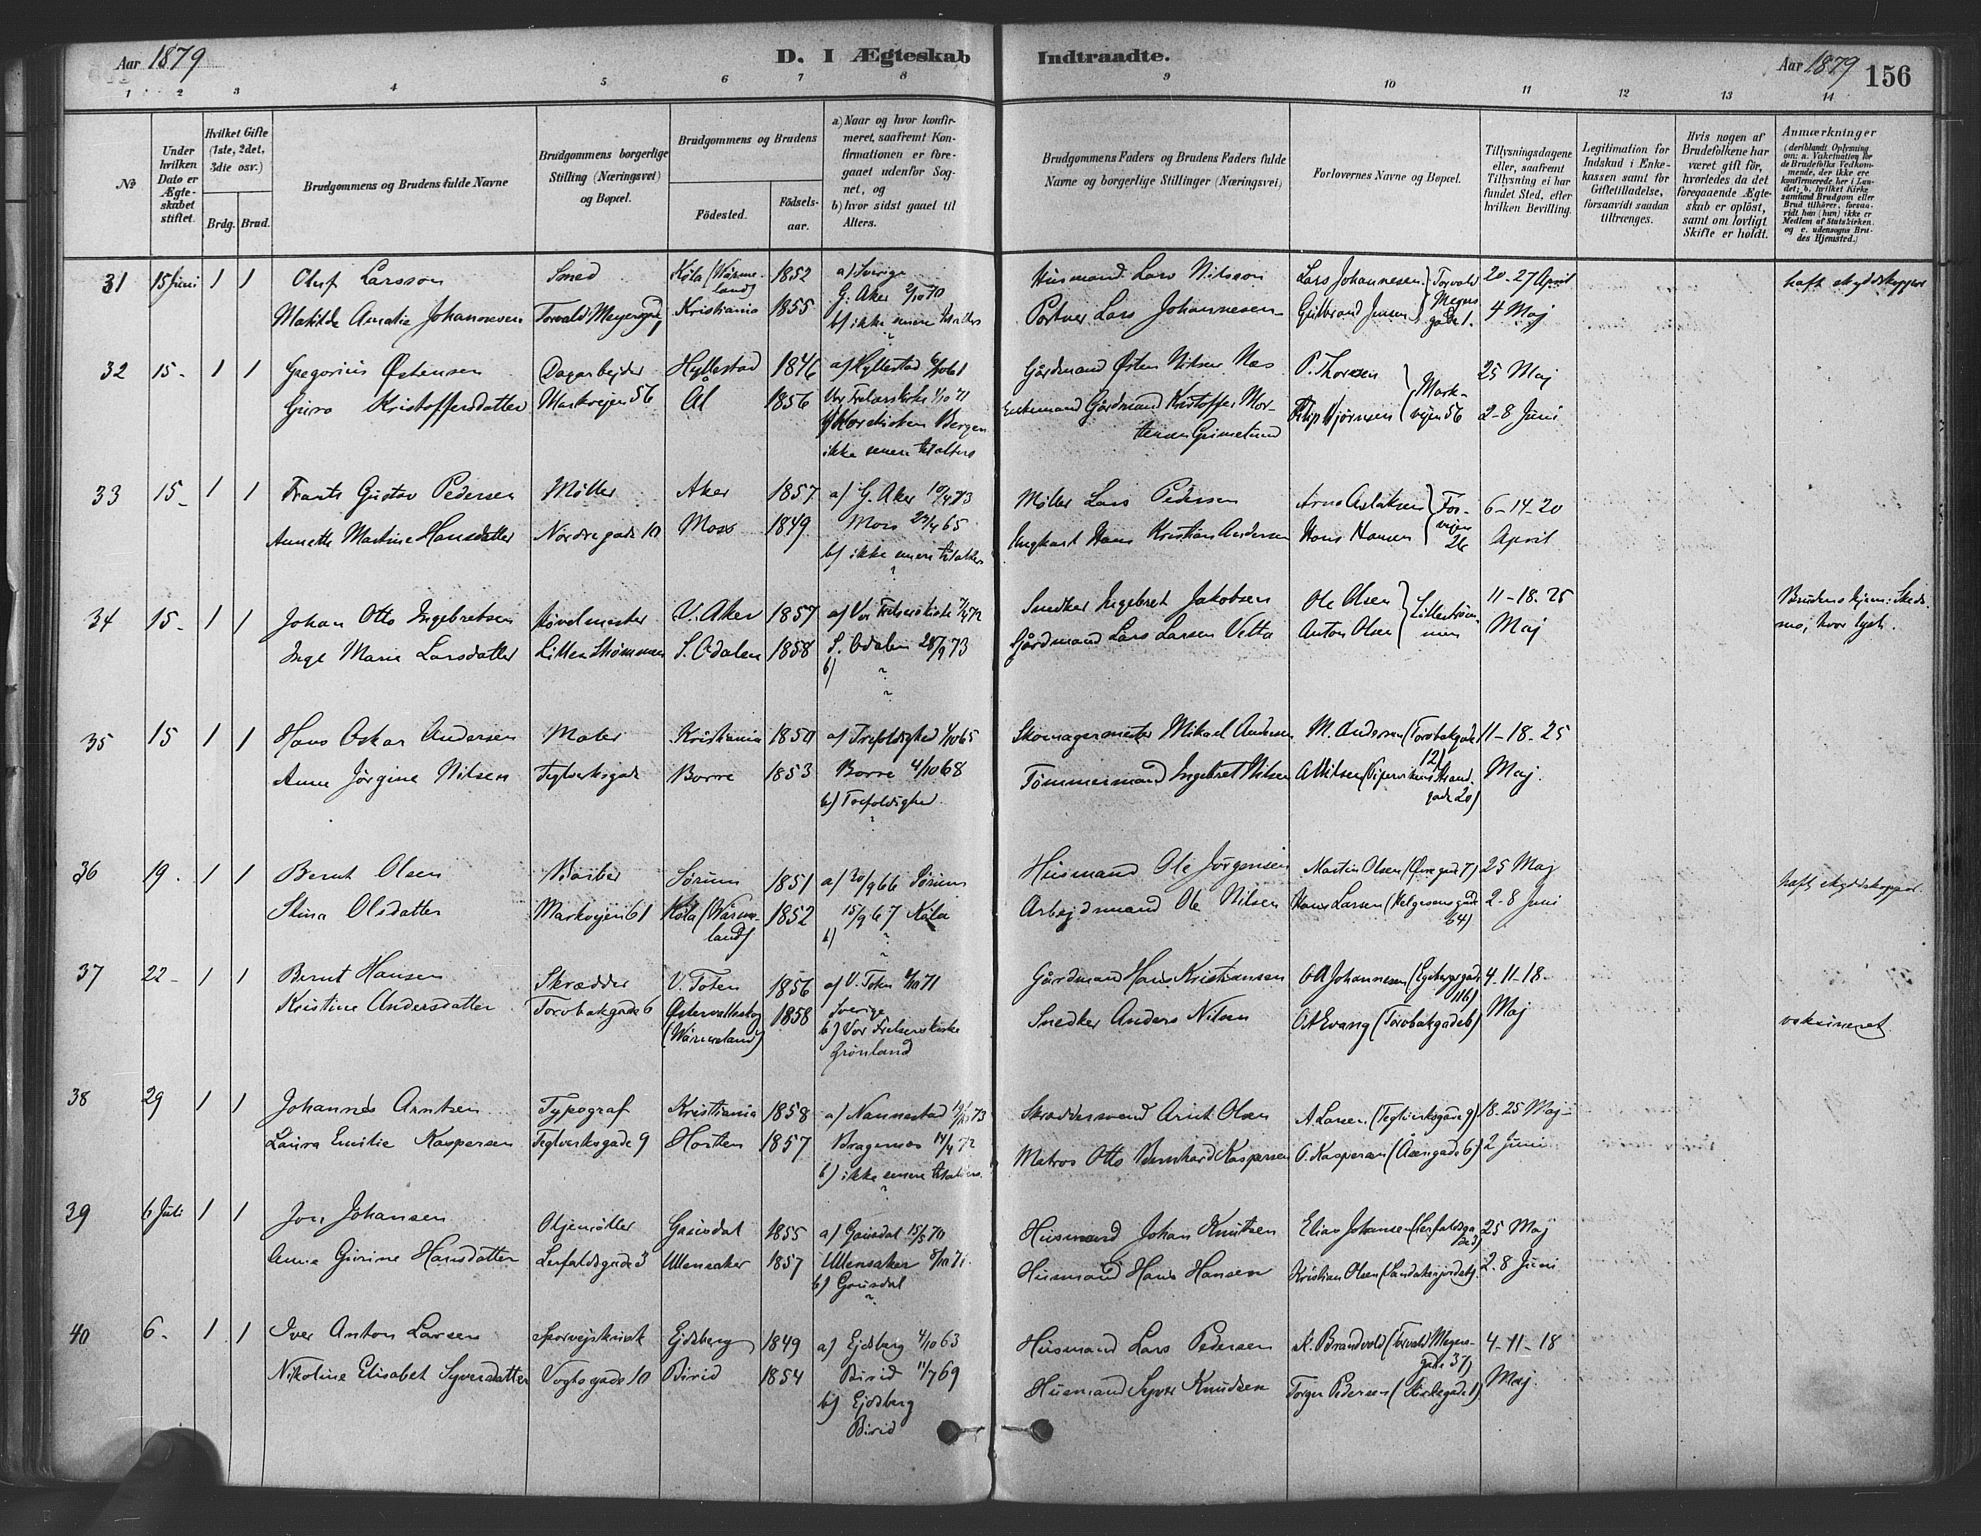 Aar 1879
D. I Ægteskab Indtraadte.
Aar 1879 156
1 2 3 4 5 6 7 8 9 10 11 12 13 14
No
Under hvilken Dato er Ægteskabet stiftet.
Hvilket Gifte (1ste, 2det, 3die osv.)
Brdg. Brud.
Brudgommens og Brudens fulde Navne
Brudgommens borgerlige Stilling (Næringsvei) og Bopæl.
Brudgommens og Brudens
Fødested.
Fødselsaar.
a) Naar og hvor konfirmeret, saafremt Konfirmationen er foregaaet udenfor Sognet, og
b) hvor sidst gaaet til Alters.
Brudgommens Faders og Brudens Faders fulde Navne og borgerlige Stillinger (Næringsvei)
Forlovernes Navne og Bopæl.
Tillysningsdagene eller, saafremt Tillysning ei har fundet Sted, efter hvilken Bevilling.
Legitimation for Indskud i Enkekassen samt for Giftetilladelse, forsaavidt saadan tiltrænges.
Hvis nogen af Brudefolkene har været gift før, hvorledes da det foregaaende Ægteskab er opløst, samt om lovligt Skifte er holdt.
Anmærkninger (deriblandt Oplysning om: a. Vakcination for de Brudefolks Vedkommende, der ikke ere konfirmerede her i Landet; b. hvilket Kirkesamfund Brudgom eller Brud tilhører, forsaavidt han (hun) ikke er Medlem af Statskirken. og c. udensogns Brudes Hjemsted.)
31 15 Juni 1 1 Oluf Larsson Smed Køla (Wärme- 1852 a) Sverige Husmand Lars Nilsson Lars Johannesen Torvald 20-27 April haft skydskopper
land)
Matilde Amalie Johannesen Torvald Meyersgade 1 Kristiania 1855 G. Aker 2/10 70 Portner Lars Johannesen Gulbrand Jensen Meyersgade 1. 4 Maj
b) ikke senere til alters
32 15- 1 1 Gregorius Østensen Dagarbejder Hyllestad 1846 a) Hyllestad 6/10 61 Gårdmand Østen Nilsen Næs P. Thoresen Mark- 25 Maj
Guro Kristoffersdatter Markvejen 56 Ål 1856 Vor Frelserskirke 1/10 71 Enkemand Gårdmand Kristoffer Mor- Filip Bjørnsen vejen 56 2-8 Juni
tensen Grimelund
b) Korskirken Bergen
ikke senere til alters
33 15- 1 1 Frants Gustav Pedersen Møller Aker 1857 a) G. Aker 10/4 73 Møller Lars Pedersen Arne Aslaksen 6-14-20
Annette Martine Hansdatter Nordregade 10 Moss 1849 Moss 23/4 65 Ungkarl Hans Kristian Andersen Hans Hansen 26 April
b) ikke senere til alters
34 15- 1 1 Johan Otto Ingebretsen Høvelmester V. Aker 1857 a) Vor Frelserskirke 7/4 72 Snedker Ingebret Jakobsen Ole Olsen Lillestrøm- 11-18-25 Brudens hjem: Skeds-
Inge Marie Larsdatter Lillestrømmen S. Odalen 1858 S. Odalen 28/9 73 Gårdmand Lars Larsen Vetta Anton Olsen men Maj mo, hvor lyst.
b)
35 15 1 1 Hans Oskar Andersen Maler Kristiania 1850 a) Trefoldighed 1/10 65 Skomagermester Mikael Andersen M. Andersen (Torvbakgade 12) 11-18-25
Anna Jørgine Nilsen Teglverksgade Borre 1853 Borre 4/10 68 Tømmermand Ingebret Nilsen A Nilsen (Pipervikens Strandgade 20) Maj
b) Trefoldighed
36 19. 1 1 Bernt Olsen Barber Sørum 1851 a) 30/9 66 Sørum Husmand Ole Jørgensen Martin Olsen (Øvregade 7) 25 Maj
Stina Olsdatter Markvejen 61 Køla (Wärme- 1852 15/9 67 Køla Arbejdsmand Ole Nilsen Hans Larsen (Helgesensgade 64) 2-8 Juni haft skydskopper.
land) b)
37 22- 1 1 Bernt Hansen Skrædder V. Toten 1856 a) V. Toten 71 Gårdmand Hans Kristiansen O A Johannesen 4-11-18-
Kristine Andersdatter Torvbakgade 6 Østervallskog 1858 Sverige Snedker Anders Nilsen O A Evang (Torvbakgade 6) Maj vaksineret
(Wärmeland) b) Vor Frelserskirke
Grønland
38 29 1 1 Johannes Arntsen Typograf Kristiania 1858 a) Nannestad 73 Skræddersvend Arnt Olsen A. Larsen (Teglverksgade 9) 18-25 Maj-
Laura Emilie Kaspersen Teglverksgade 9 Horten 1857 Bragernæs 14/4 72 Matros Otto Bernhard Kaspersen O. Kaspersen (Åsengade 6) 2 Juni
b) ikke senere til alters
39 6 Juli 1 1 Jon Johansen Oljemøller Gausdal 1855 a) Gausdal 15/5 70 Husmand Johan Knutsen Elias Johansen (Lerfaldsgade 3) 25 Maj
Anne Gurine Hansdatter Lerfaldsgade 3 Ullensaker 1857 Ullensaker 8/10 71 Husmand Hans Hansen Kristian Olsen 2-8 Juni
b) Gausdal
40 6- 1 1 Iver Anton Larsen Sporvejskusk Ejdsberg 1849 a) Ejdsberg 4/10 63 Husmand Lars Pedersen K. Brandvold (Torvald Meyersgade 37) 4-11-18
Nikoline Elisabet Syversdatter Vogtsgade 10 Birid 1854 Birid 11/7 69 Husmand Syver Knudsen Torger Pedersen (Kirkegade 1) Maj
b) Ejdsberg
Birid